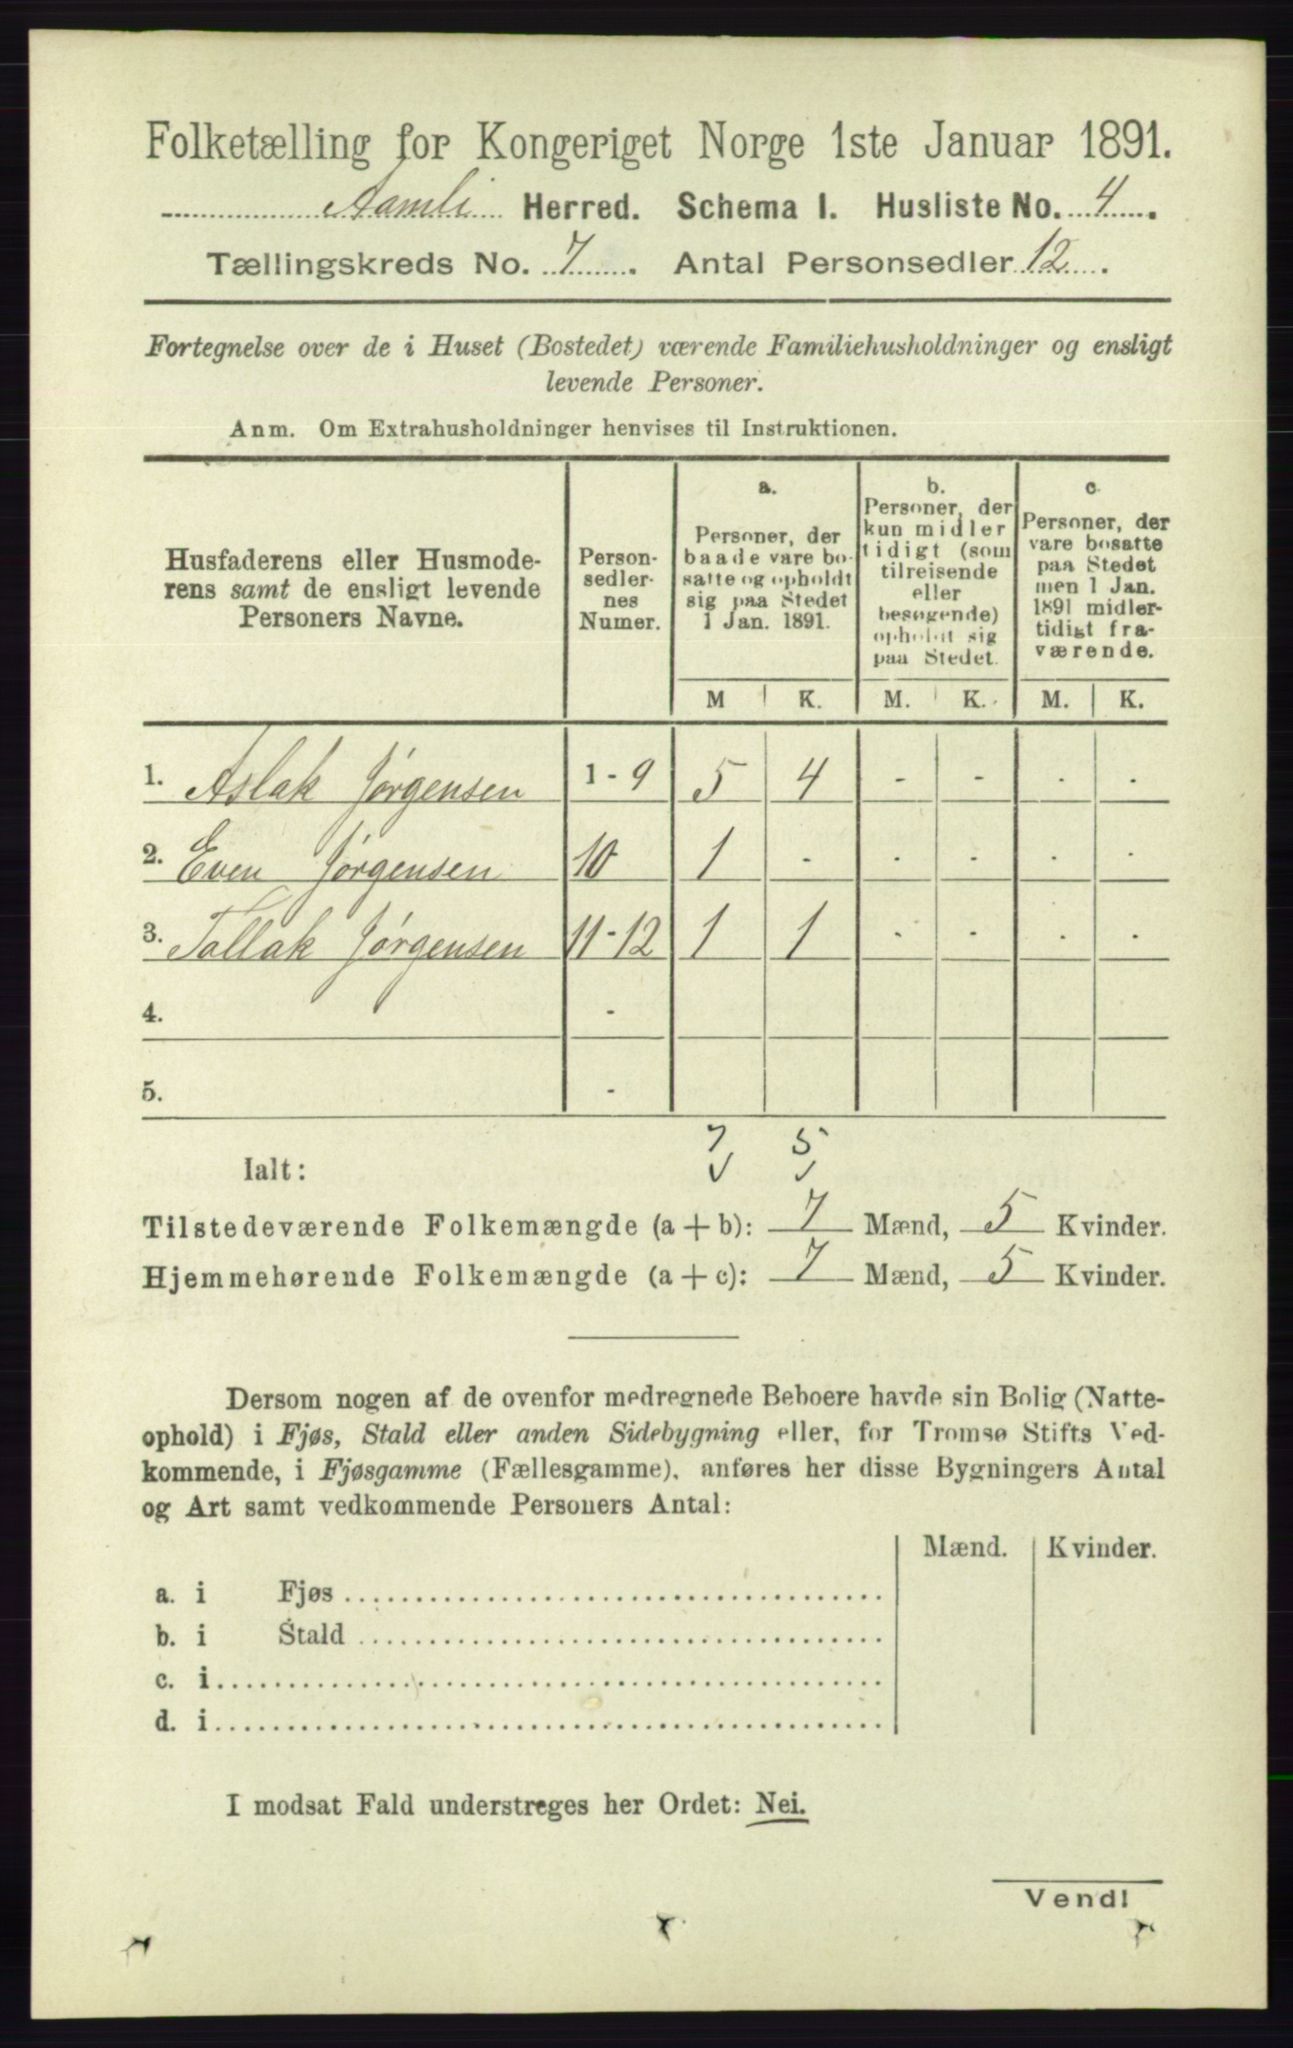 Folketælling for Kongeriget Norge 1ste Januar 1891.
Aamli Herred. Schema I. Husliste No. 4.
Tællingskreds No. 7. Antal Personsedler 12.
Fortegnelse over de i Huset (Bostedet) værende Familiehusholdninger og ensligt
levende Personer.
Anm. Om Extrahusholdninger henvises til Instruktionen.
Husfaderens eller Husmode-
rens samt de ensligt levende
Personers Navne.
Person-
sedler-
nes
Numer.
a.
Personer, der
baade vare bo-
satte og opholdt
sig paa Stedet
1 Jan. 1891.
b.
Personer, der
kun midler
tidigt (som
tilreisende
eller
besøgende)
opholdt sig
paa Stedet.
c.
Personer, der
vare bosatte
paa Stedet
men 1 Jan.
1891 midler-
tidigt fra-
værende.
M K. M. K. M. K.
1. Aslak Jørgensen 1 - 9 5 4 - - - -
2. Even Jørgensen 10 1 - - - - -
3. Tallak Jørgensen 11-12 1 1 - - - -
4. -
5. -
7 5
Ialt: ✓ ✓
Tilstedeværende Folkemængde (a + b): 7 Mænd, 5 Kvinder.
Hjemmehørende Folkemængde (a + c): 7 Mænd, 5 Kvinder.
Dersom nogen af de ovenfor medregnede Beboere havde sin Bolig (Natte-
ophold) i Fjøs, Stald eller anden Sidebygning eller, for Tromsø Stifts Ved-
kommende, i Fjøsgamme (Fællesgamme), anføres her disse Bygningers Antal
og Art samt vedkommende Personers Antal:
Mænd. Kvinder.
a. i Fjøs
b. i Stald
c. i
d. i
I modsat Fald understreges her Ordet: Nei.
Vend!